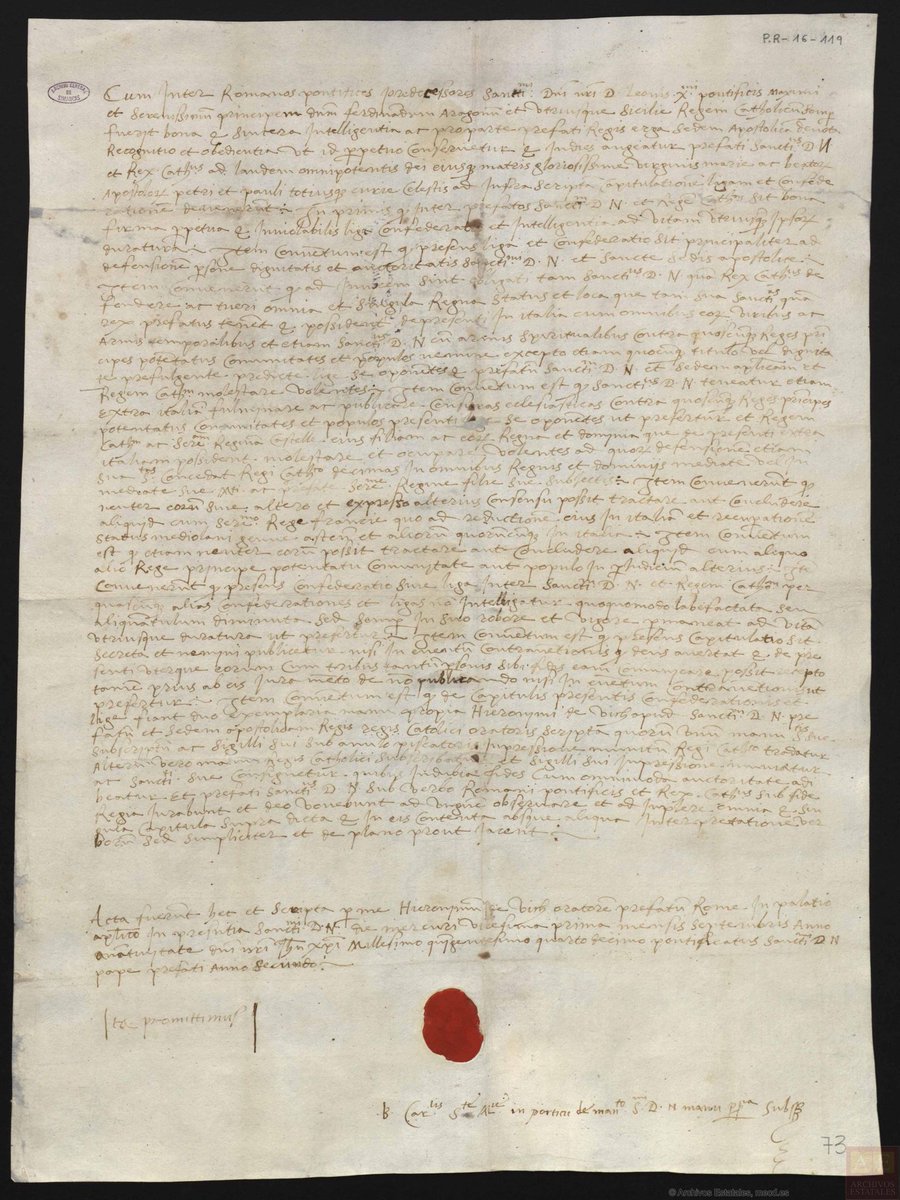 P.R-16-119
ARCHIVO GENERAL DE SIMANCAS
Cum Inter Romanos pontifices predecessores Sanctmi Dni nri D. Leonis Xmi pontificis Maximi
et Serenissimum principem dnum ferdinandum Aragonum et Utriusque Sicilie Regem Catholicum semp
fuerit bona & sincera Intelligentia ac pro parte prefati Regis erga Sedem Apostolicã devota
Recognitio et obedientia. Ut id perpetuo conservetur & Indies augeatur prefati Sanctmus D N
et Rex Cathus ad laudem omnipotentis dei eiusq matris gloriosissime virginis marie ac beator
Apostolor petri et pauli totiusq curie celestis ad Infra scriptã capitulationẽ ligam et confede
rationẽ devenerunt. In primis q Inter prefatos Sanctmũ D. N. et Regẽ Cathm sit bona
firma perpetua & Inviolabilis liga Confederatio et Intelligentia ad vitam utriusq Ipsor
duratura. Item Conventum est q presens liga et Confederatio sit principaliter ad
defensionẽ psone dignitatis et auctoritatis Sanctmi D. N. et Sancte Sedis apostolice.
Item Convenerunt q ad Invicem sint obligati tam Sanctmus D. N quã Rex Cathus de
fendere ac tueri omnia et Singula Regna Status et loca que tam sua Sanctas quã
rex prefatus tenet & possident de presenti In italia cum omnibus eor viribus ac
Armis temporalibus et etiam Sanctmus D. N cũ armis Spiritualibus Contra quoscũq Reges prĩ
cipes potẽtatus Comunitates et populos nemine excepto etiam quocũq titulo vel dignita
te prefulgente predicte lige se oponẽtes & prefatũ Sanctm D. N. et Sedem aplicam et
Regem Cathm molestare volentes. Item Conventum est q Sanctmus D. N teneatur etiam
Extra italiã fulminare ac publicare Censuras eclesiasticas Contra quoscũq Reges prĩcipes
potentatus Comunitates et populos presenti lige se oponẽtes ut prefertur et Regem
Cathm ac Serm Reginã Castelle eius filiam ac eor Regna et dominia que de presenti extra
italiam possident molestare et ocupare volentes ad quor defensionẽ etiam
sua Stas Concedat Regi Catho decimas In omnibus Regnis et dominiis mediate vel In
mediate sue Mti ac prefate Serme Regine filie sue Subiectis. Item Convenerunt q
neuter eorũ sine altero et expresso alterius Consensu possit tractare aut Concludere
aliquid cum Sermo Rege francie quo ad reductionẽ eius In italiã et recuperationẽ
Status mediolani genue astẽn et aliorũ quorũcũq In italia. Item Conventum
est q etiam neuter eorũ possit tractare aut Concludere aliquid cum aliquo
alio Rege principe potentatu Comunitate aut populo In preIudiciũ alterius. Itẽ
Convenerunt q presens Confederatio sive liga Inter Sanctmũ D. N. et Regem Cathm per
quascũq alias Confederationes et ligas nõ Intelligatur quoquomodo labefactata seu
aliquãtulum diminuta Sed Semp In suo robore et vigore pmaneat ad vitã
utriusque duratura ut prefertur. Item Conventum est q presens Capitulatio sit
Secreta et nemini publicetur nisi In eventũ Contraventionis q deus avertat & de pre
senti uterque eorum Cum tribus tantũ psonis sibi fidis eam Comunicare possit recepto
tamen prius ab eis Iuramẽto de nõ publicando nisi In eventum Contraventionis ut
prefertur. Item Conventum est q de Capitulis presentis Confederationis et
lige fiant duo exemplaria manu propria Hieronymi de Vich apud Sanctm D. N. pre
fatũ et Sedem apostolicam Regis Catolici oratoris scripta quorũ unũ manu Stis sue
subscriptũ ac sigilli sui Sub annulo piscatoris Inpressione munitũ Regi Catho tradatur
Alterũ vero manu Regis Catholici Subscribatur et sigilli sui Inpressione muniatur
ac Sancti sue Consignetur quibus Indubia fides Cum omnimoda auctoritate ad
beatur Et prefati Sanctmus D. N Sub verbo Romani pontificis et Rex Cathus Sub fide
Regia Iurabunt et deo Vovebunt ad Ungue observare et ad Inplere omnia & Sin
gula Capitula Supra dicta & In eis Contenta absque aliqua Interpretatione Ver
borũ Sed Simpliciter et de plano prout Iacent
Acta fuerunt hec et Scripta p me Hieronymum de Vich oratorem prefatũ Rome In palatio
aplico In presentia Sanctmi D. N. die mercuri Vicesima prima mensis Septembris Anno
a nativitate dni nri Ihu Xpi Millesimo quingentesimo quarto decimo pontificatus Sanctmi D N
pape prefati Anno Secundo
Ita promittimus
B. Carlis Ste Me in porticu de manto S D. N manu ppria Subss
73
ARCHIVOS ESTATALES
© Archivos Estatales, mecd.es